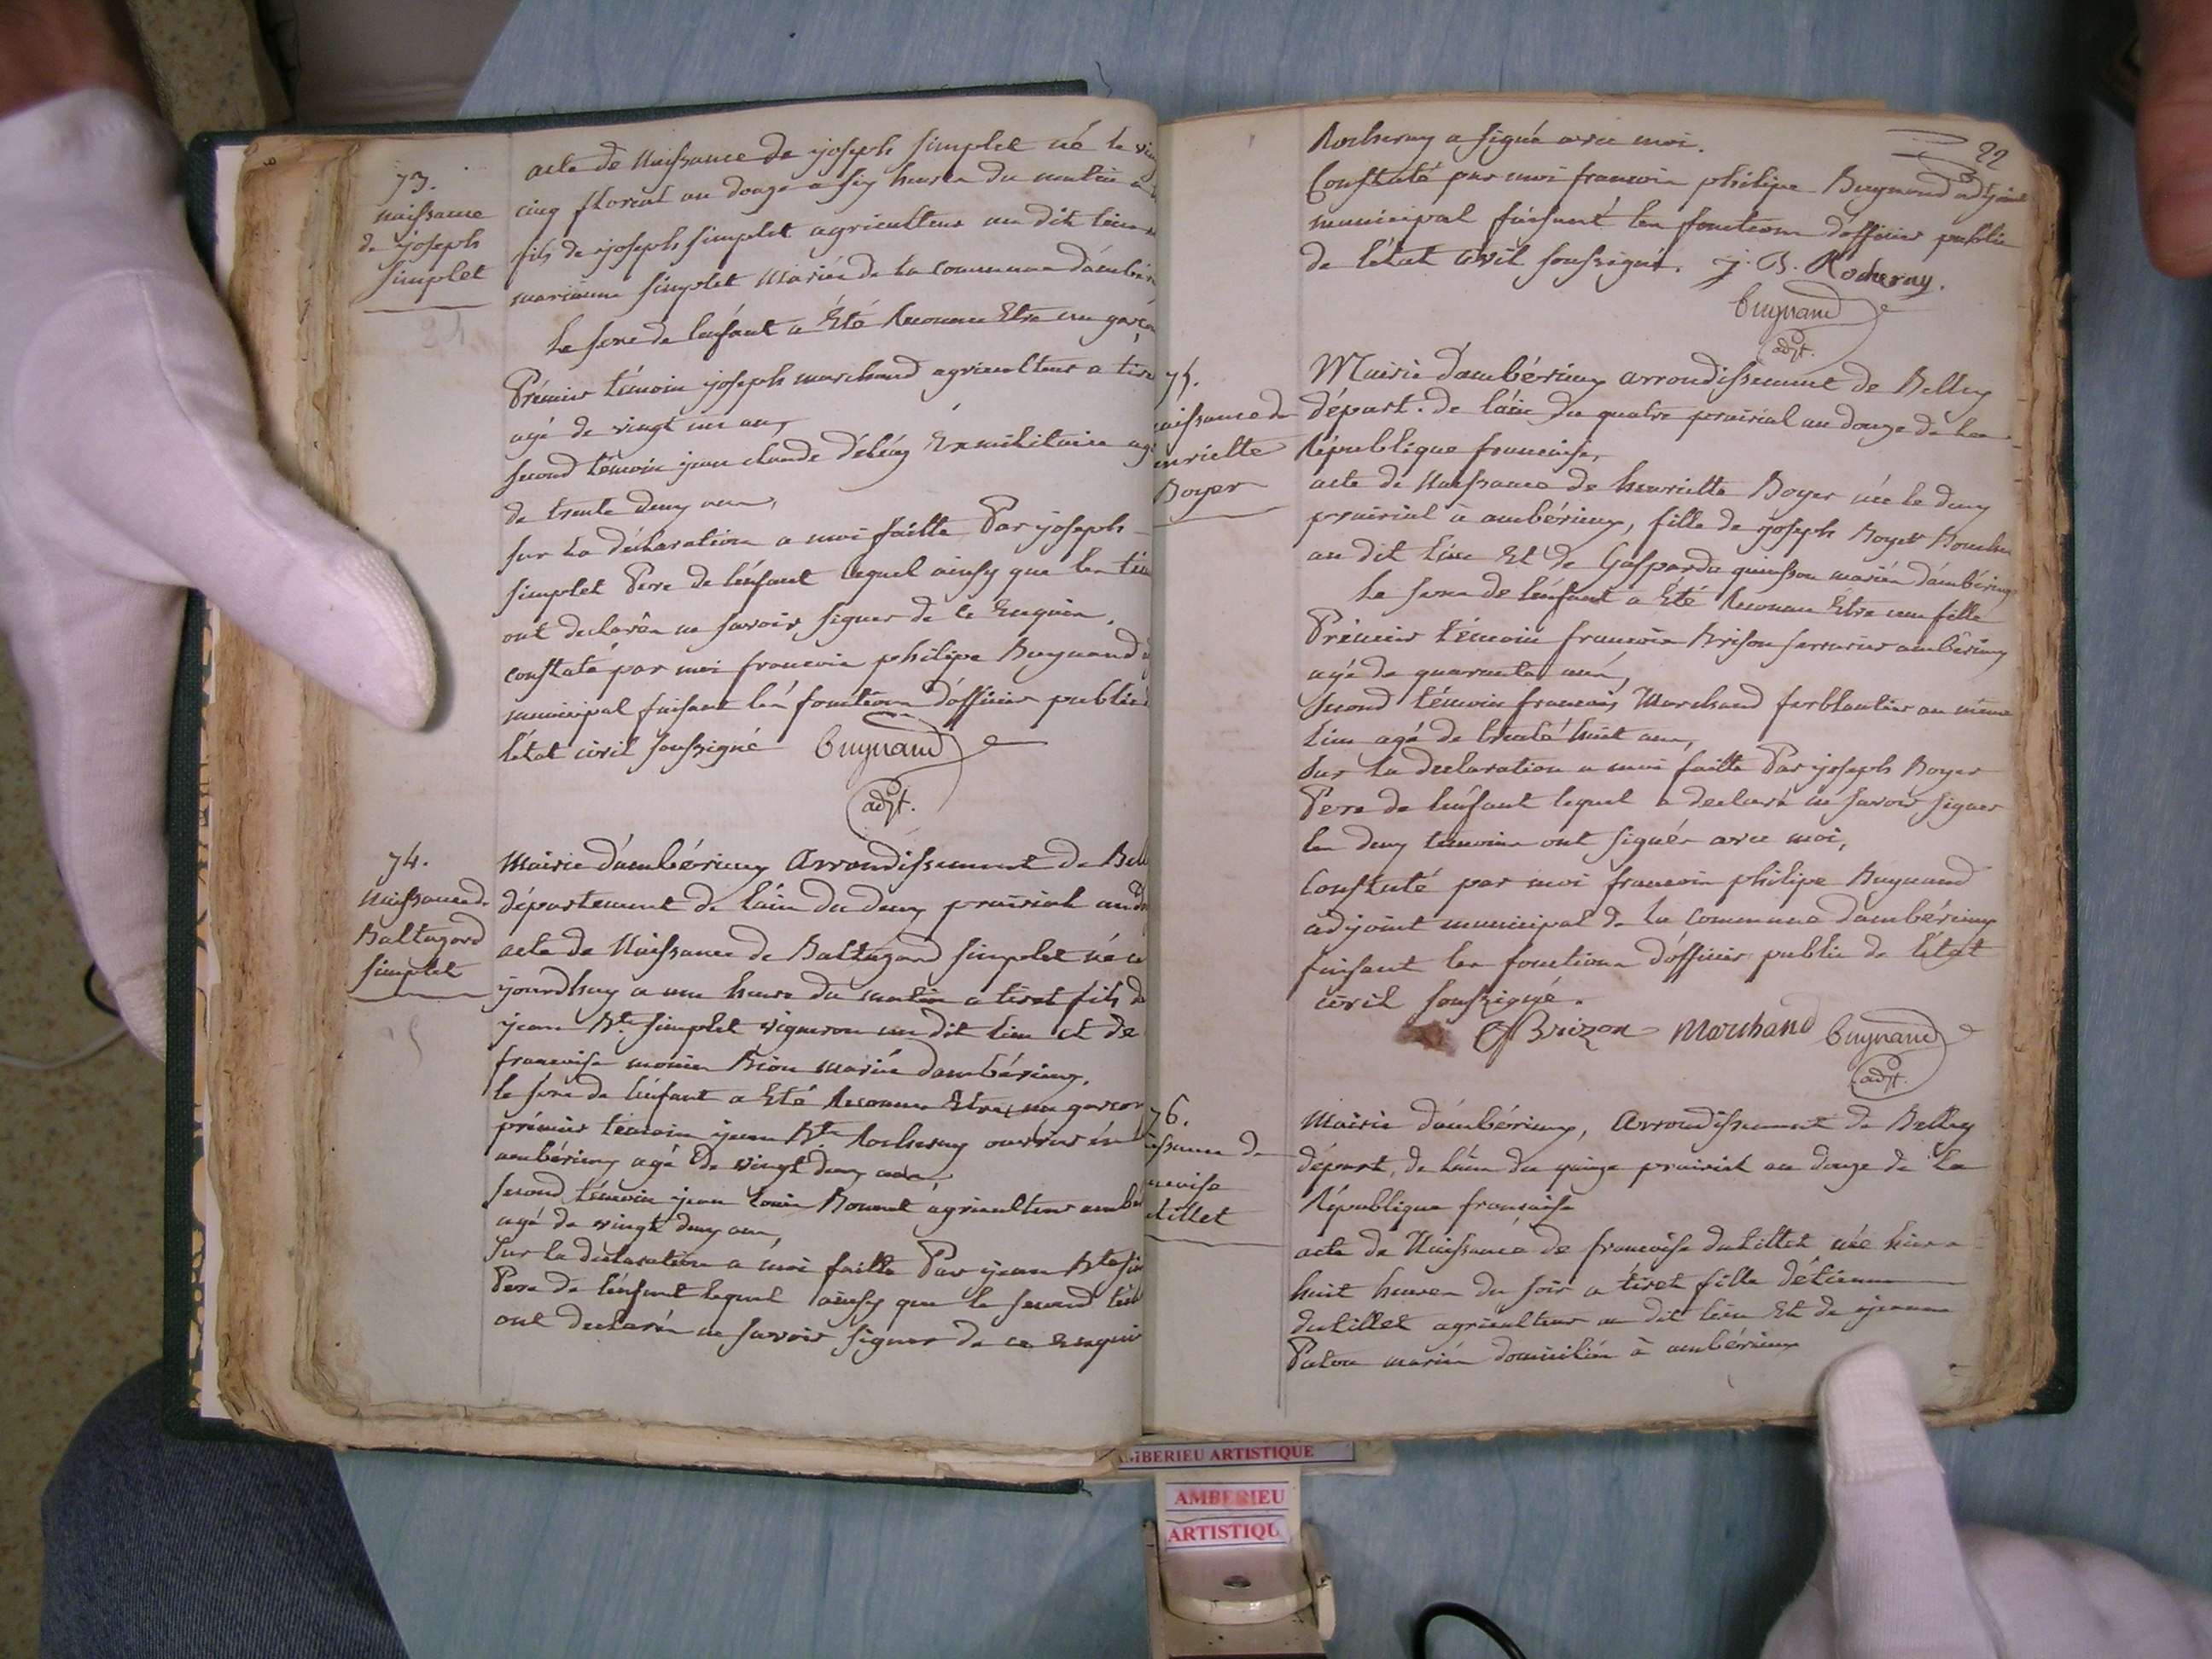 73.
naissance
de joseph
simplet
acte de Naissance de joseph simplet né le
cinq floréal an douze a six heures du matin
fils de joseph simplet agriculteur au dit lieu
marianne simplet mariés de la commune dambér
le sexe de lenfant a Eté Reconnu Etre un garço
Prémier témoin joseph marchand agriculteur a tire
agé de vingt un ans,
second témoin jean claude Exmilitaire ag
de trente deux ans,
sur La déclaration a moi faitte Par joseph
simplet Pere de lenfant lequel ainsy que les tém
ont declarés ne savoir signer de ce Enquis.
constaté par moi francois philipe Bugnand
municipal faisant les fonctions dofficier public
létat civil soussigné Bugnand
adjt.
74.
Naissance de
Baltazard
simplet
Mairie dambérieux Arrondissement de Bell
département de lain du deux prairial an
acte de Naissance de Baltazard simplet né
jourdhuy a une heure du matin a tiret fils de
jean Bte simplet vigneron au dit lieu et de
francoise Brion mariés dambérieux.
le sexe de lenfant a Eté Reconnu Etre un garcon
prémier témoin jean Bte Rocheray ouvrier
ambérieux agé de vingt deux ans
second témoin jean Louis Bonnet agriculteur ambe
agé de vingt deux ans,
Sur la déclaration a moi faitte Par jean Bte
Pere de lenfant lequel ainsy que le second tém
ont declarés ne savoir signer de ce Enquis
22
Rocheray a signé avec moi.
Constaté par moi francois philipe Bugnand adjoint
municipal faisant les fonctions dofficier public
de létat civil soussigné. J. B. Rocheray.
Bugnand
adjt.
75.
aissance de
enriette
Boyer
Mairie dambérieux arrondissement de Belley
départ. de lain du quatre prairial an douze de la
République francaise,
acte de Naissance de henriette Boyer née le deux
prairial à ambérieux, fille de joseph Boyer
au dit lieu Et de Gasparde quinson mariés dambérieux
le sexe de lenfant a Eté Reconnu Etre une fille
Prémier témoin francois Brison serrurier ambérieux
agé de quarante ans,
Second témoin francois Marchand ferblantier au même
lieu agé de trente huit ans,
Sur la declaration a moi faitte Par joseph Boyer
Pere de lenfant lequel a declaré ne savoir signer
les deux temoins ont signés avec moi,
Constaté par moi francois philipe Bugnand
adjoint municipal de la commune dambérieux
faisant les fonctions dofficier public de létat
civil soussigné.
Brizon Marchand Bugnand
adjt.
76.
issance de
ncoise
utillet
Mairie dambérieux, Arrondissement de Belley
départ. de lain du quinze prairial an douze de la
République francaise
acte de Naissance de francoise dutillet née hier a
huit heures du soir a tiret fille détienne
dutillet agriculteur au dit lieu Et de jeanne
mariés domiciliés à ambérieux
MBERIEU ARTISTIQUE
AMBERIEU
ARTISTIQU